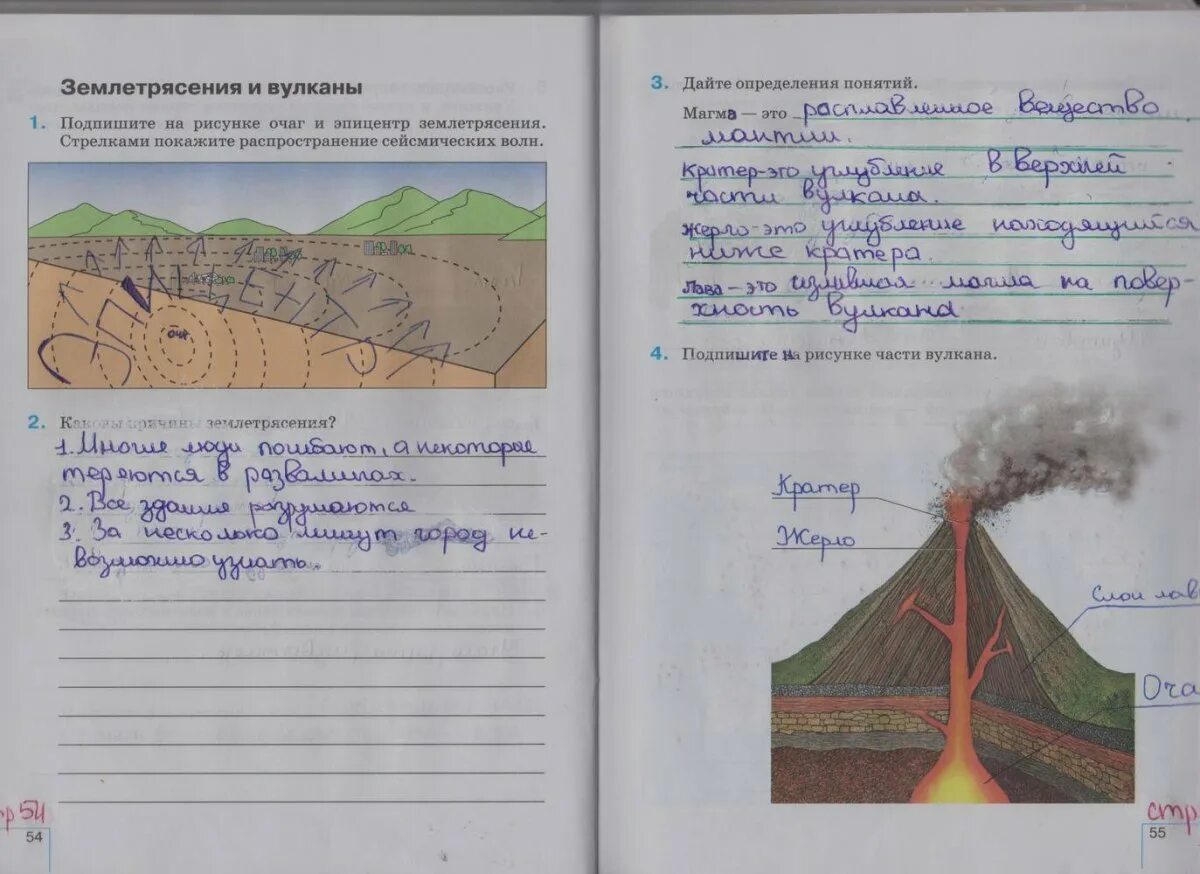 Землетрясения и вулканы
1. Подпишите на рисунке очаг и эпицентр землетрясения.
Стрелками покажите распространение сейсмических волн.
очаг
2. Каковы причины землетрясения?
1. Многие люди погибают, а некоторые
теряются в развалинах.
2. Все здания разрушаются
3. За несколько минут город не-
возможно узнать.
р 54
54
3. Дайте определения понятий.
Магма — это расплавленное вещество
мантии.
Кратер-это углубление в верхней
части вулкана.
Жерло-это углубление находящийся
ниже кратера.
Лава-это излившая магма на повер-
хность вулкана
4. Подпишите на рисунке части вулкана.
Кратер
Жерло
Слои лав
Оча
стр
55